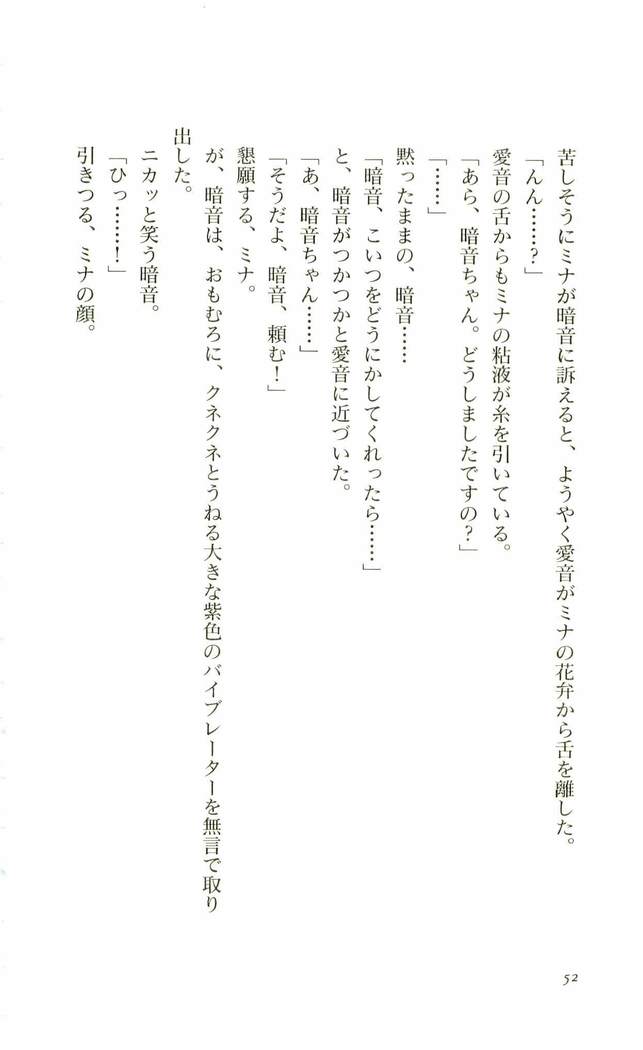 苦しそうにミナが暗音に訴えると、ようやく愛音がミナの花弁から舌を離した。
「んん……？」
愛音の舌からもミナの粘液が糸を引いている。
「あら、暗音ちゃん。どうしましたですの？」
「……」
黙ったままの、暗音……
「暗音、こいつをどうにかしてくれったら……」
と、暗音がつかつかと愛音に近づいた。
「あ、暗音ちゃん……」
「そうだよ、暗音、頼む！」
懇願する、ミナ。
が、暗音は、おもむろに、クネクネとうねる大きな紫色のバイブレーターを無言で取り
出した。
ニカッと笑う暗音。
「ひっ……！」
引きつる、ミナの顔。
52